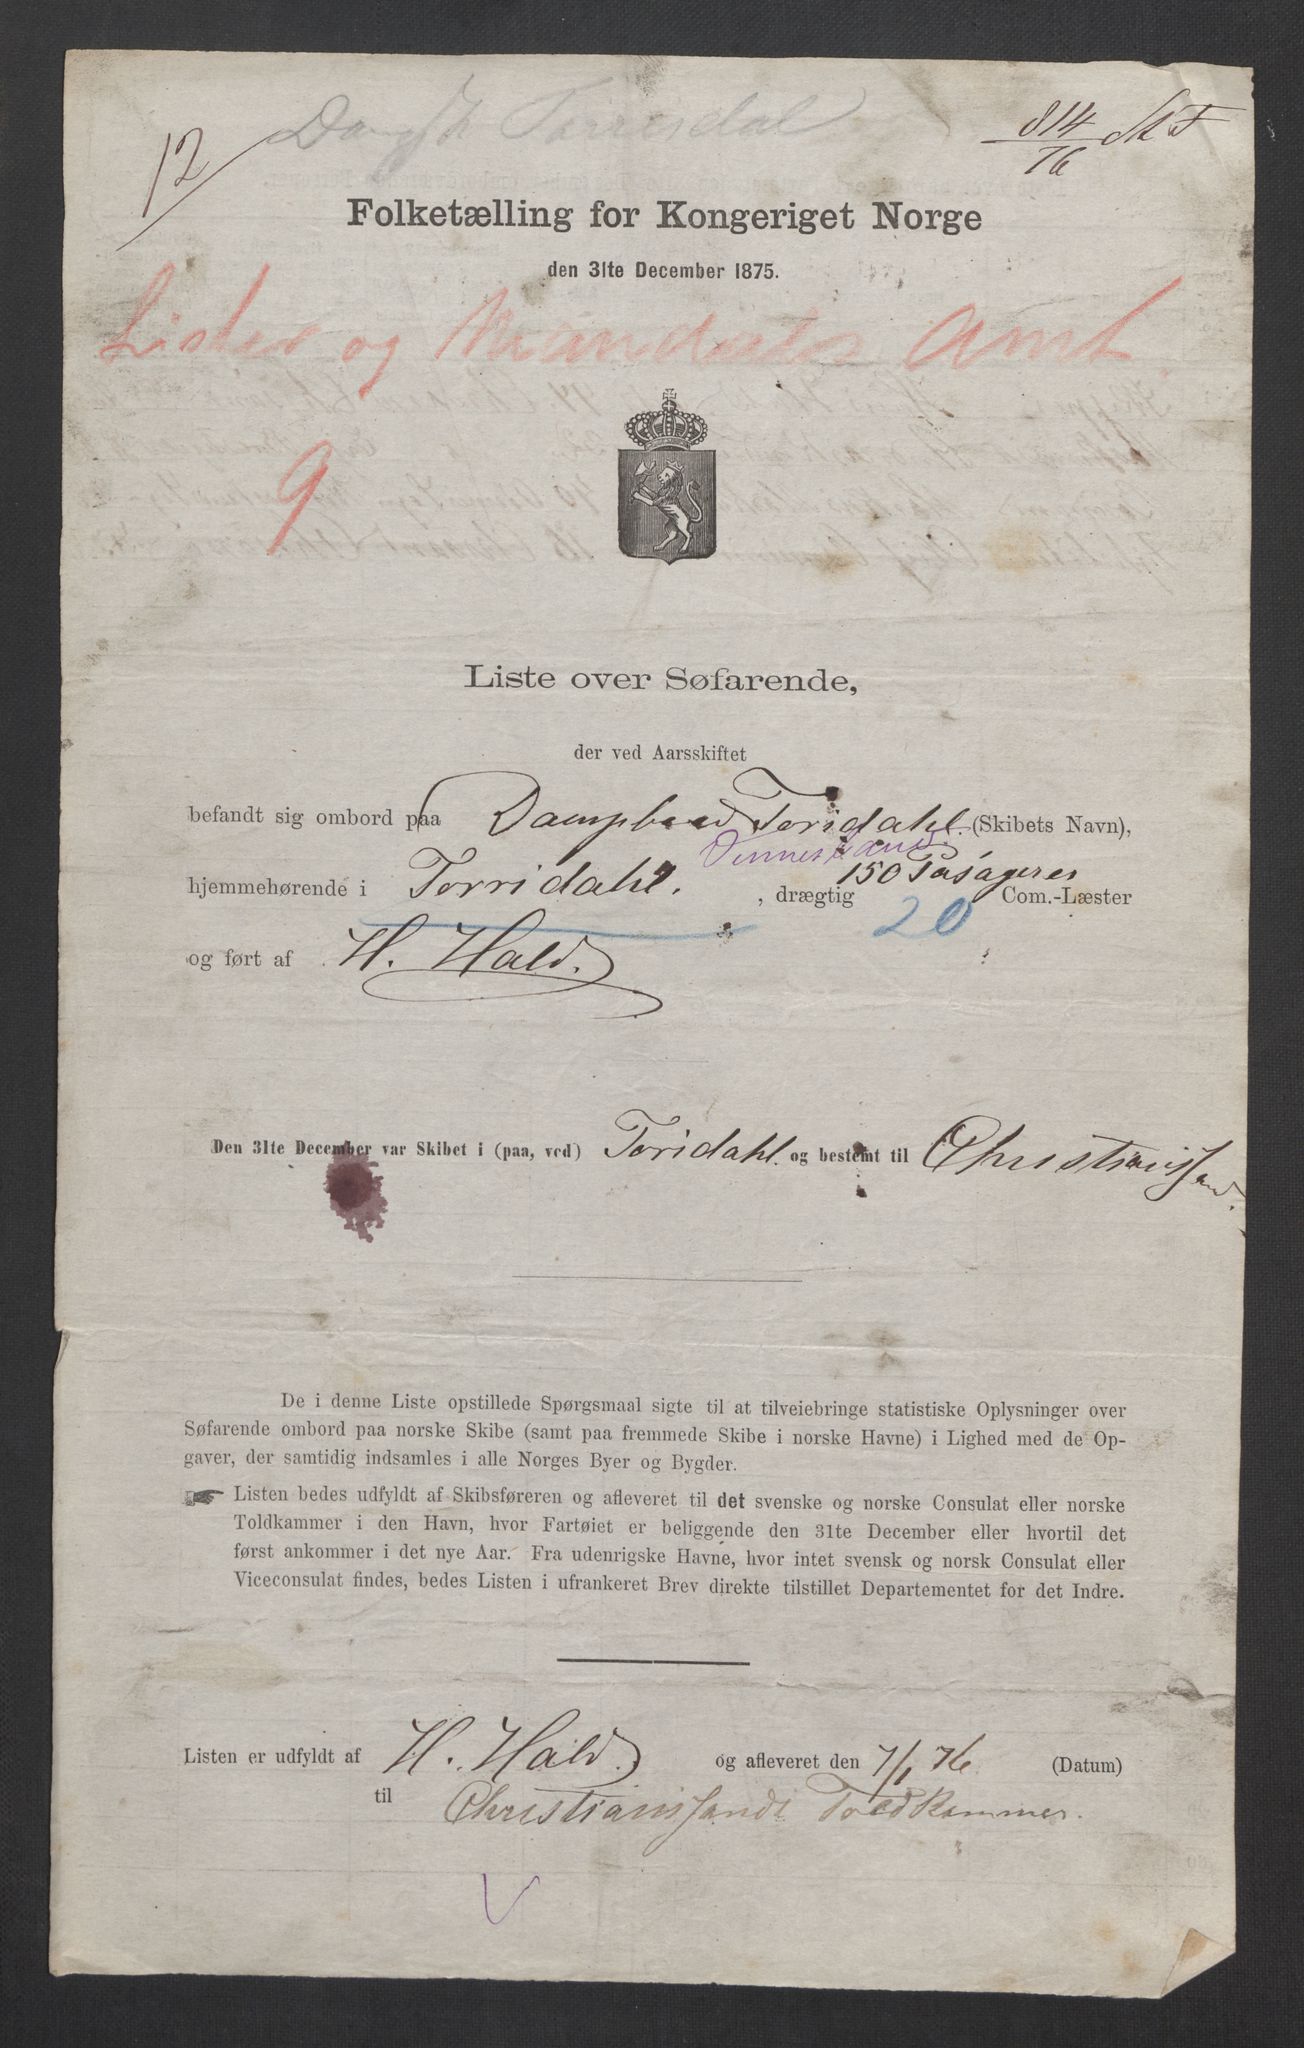 Dampsk Torrisdal
12
814/76 St F
Folketælling for Kongeriget Norge
den 31te December 1875.
Lister og Mandals Amt
9
Liste over Søfarende,
der ved Aarsskiftet
befandt sig ombord paa Dampbaad Toridahl. (Skibets Navn),
Vennesland
150 Pasagerer
hjemmehørende i Torridahl. , drægtig 20 Com.-Læster
og ført af H. Hald.
Den 31te December var Skibet i (paa, ved) Toridahl. og bestemt til Christianssand.
De i denne Liste opstillede Spørgsmaal sigte til at tilveiebringe statistiske Oplysninger over
Søfarende ombord paa norske Skibe (samt paa fremmede Skibe i norske Havne) i Lighed med de Op-
gaver, der samtidig indsamles i alle Norges Byer og Bygder.
☛ Listen bedes udfyldt af Skibsføreren og afleveret til det svenske og norske Consulat eller norske
Toldkammer i den Havn, hvor Fartøiet er beliggende den 31te December eller hvortil det
først ankommer i det nye Aar. Fra udenrigske Havne, hvor intet svensk og norsk Consulat eller
Viceconsulat findes, bedes Listen i ufrankeret Brev direkte tilstillet Departementet for det Indre.
Listen er udfyldt af H. Hald. og afleveret den 7/1 76 (Datum)
til Christianssands Toldkammer.